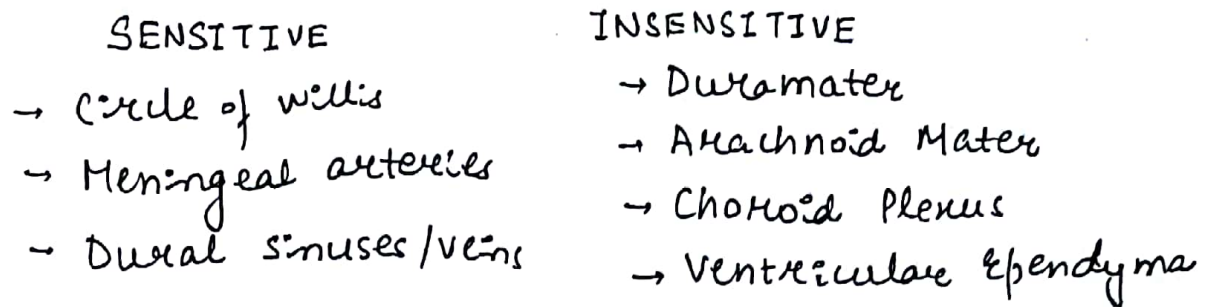 SENSITIVE
→ Circle of willis
→ Meningeal arteries
→ Dural sinuses/veins
INSENSITIVE
→ Duramater
→ Arachnoid Mater
→ Choroid Plexus
→ Ventricular Ependyma